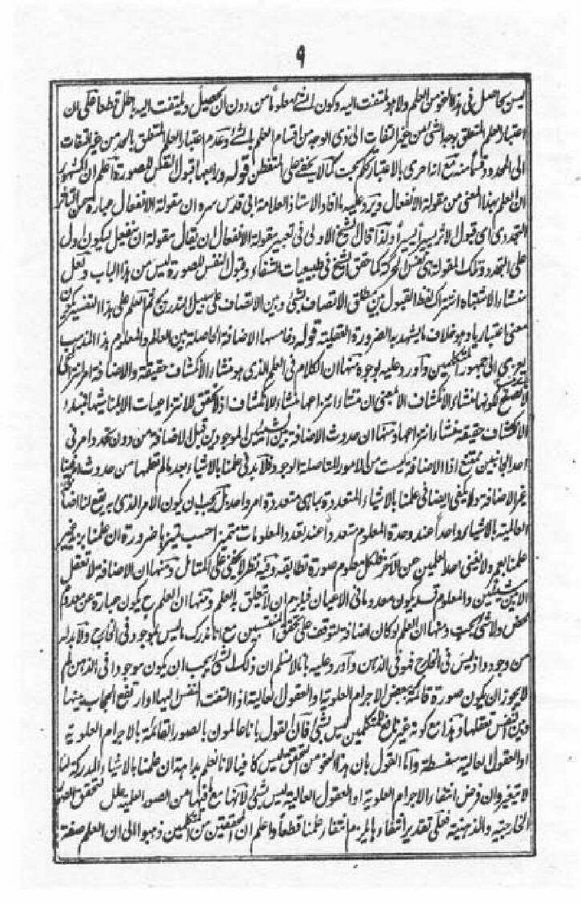 ٩
ليس بحاصل فى هذا النحو من العلم ولا هو ملتفت اليه وكون الشئ معلوما من دون ان يحصل او يلتفت اليه باطل قطعا فعلى ان
اعتبار العلم المتعلق بوجه الشئ من غير التفات الى ذى الوجه من اقسام العلم بالشئ وعدم اعتبار العلم المتعلق بالحد من غير التفات
الى المحدود قسما منه مع انه احرى بالاعتبار تحكم بحت كما لا يخفى على المتفطن قوله ورابعها قبول النفس للصورة اعلم ان المشهور
ان العلم بهذا المعنى من مقولة الانفعال ويرد عليه ما افاد الاستاذ العلامة ابى قدس سره ان مقولة الانفعال عبارة عن التأثر
التجددى اى قبول الاثر يسيرا يسيرا ولذا قال الشيخ الاولى فى تعبير مقولة الانفعال ان يقال مقولة ان ينفعل ليكون اول
على التجدد وتلك المقولة هى نفس الحركة كما حقق الشيخ فى طبيعيات الشفاء وقبول النفس للصورة ليس من هذا الباب ولعل
منشأ الاشتباه اشتراك لفظ القبول بين مطلق الاتصاف بشئ وبين الاتصاف على سبيل التدريج ثم العلم على هذا التفسير يكون
معنى اعتباريا وهو خلاف ما يشهد به الضرورة العقلية قوله وخامسها الاضافة الحاصلة بين العالم والمعلوم هذا المذهب
يعزى الى جمهور المتكلمين واورد عليه بوجوه منها ان الكلام فى العلم الذى هو منشأ الانكشاف حقيقة والاضافة امر انتزاعى
لا يصلح لكونها منشأ لانكشاف الا بمعنى ان منشأ انتزاعها منشأ الانكشاف اذ لا تحقق للانتزاعيات الا بمناشيها فمبدأ
الانكشاف حقيقة منشأ انتزاعها ومنها ان حدوث الاضافة بين الشيئين الموجودين قبل الاضافة من دون تجدد امر فى
احد الجانبين ممتنع اذ الاضافة ليست من الامور المتأصلة الوجود فلا بد فى علمنا بالاشياء بعد ما لم نعلمها من حدوث امر فينا
غير الاضافة ولا يكفى ايضا فى علمنا بالاشياء المتعددة بما هى متعددة امر واحد بل يجب ان يكون الامر الذى به يقع لنا اضافة
العالمية بالاشياء واحدا عند وحدة المعلوم متعددا عند تعدد المعلومات متميزا حسب تميزها ضرورة ان علمنا بزيد غير
علمنا بعمرو ولا يغنى احد العلمين عن الآخر فلكل معلوم صورة تطابقه وفيه نظر لا يخفى على المتأمل ومنها ان الاضافة لا تعقل
الا بين شيئين والمعلوم قد يكون معدوما فى الاعيان فيلزم ان لا يتعلق به العلم ومنها ان العلم ح يكون عبارة عن معدوم
محض ولا شئ بحت ومنها ان العلم لو كان اضافة لتوقف على تحقق المنتسبين مع انا ندرك ما ليس بموجود فى الخارج ولا بد له
من وجود واذ ليس فى الخارج فهو فى الذهن واورد عليه بانا لا نسلم ان ذلك الشئ يجب ان يكون موجودا فى الذهن لم
لا يجوز ان يكون صورة قائمة ببعض الاجرام العلوية او العقول العالية اذا التفت النفس اليها وارتفع الحجاب بينها
وبين النفس تعقلها وهذا مع كونه غير نافع للمتكلمين ليس بشئ فان القول بانا عالمون بالصور القائمة بالاجرام العلوية
او العقول العالية سفسطة واما القول بان هذا النحو من التحقق ليس كافيا لانا نعلم بداهة ان علمنا بالاشياء المدركة لنا
لا يتغير وان فرض انتفاء الاجرام العلوية او العقول العالية ليس بشئ لانها مع ما فيها من الصور العلمية علل لتحقق الصور
الخارجية والذهنية فعلى تقدير انتفاءها يلزم انتفاء علمنا قطعا واعلم ان المحققين من المتكلمين ذهبوا الى ان العلم صفة